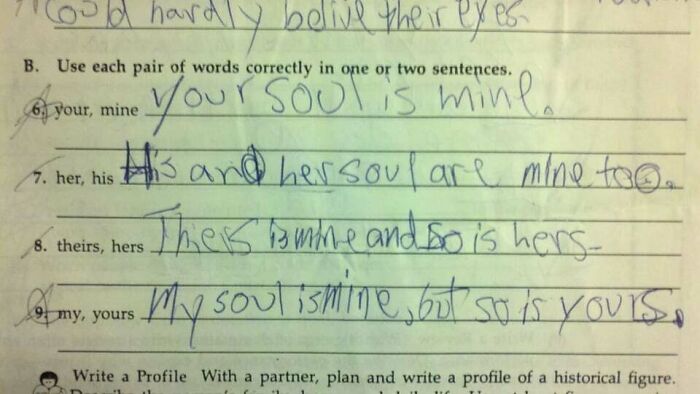 Could hardly belive their eyes.
B. Use each pair of words correctly in one or two sentences.
6. your, mine Your soul is mine.
7. her, his His and her soul are mine too.
8. theirs, hers Thiers is mine and so is hers.
9. my, yours My soul is mine, but so is yours.
Write a Profile With a partner, plan and write a profile of a historical figure.